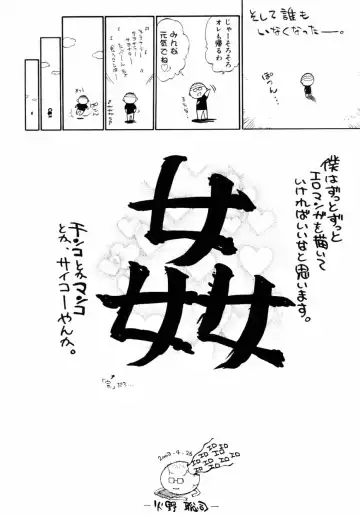 そして誰も
いなくなったー。
ぽつん…
じゃーそろそろ
オレも帰るわ
みんな
元気でね♡
姦
僕はずっとずっと
エロマンガを描いて
いければいいなと思います。
チンコとかマンコ
とか、サイコーやんか。
2003.4.26
エロ エロ エロ エロ エロ エロ
-火野 聡司-